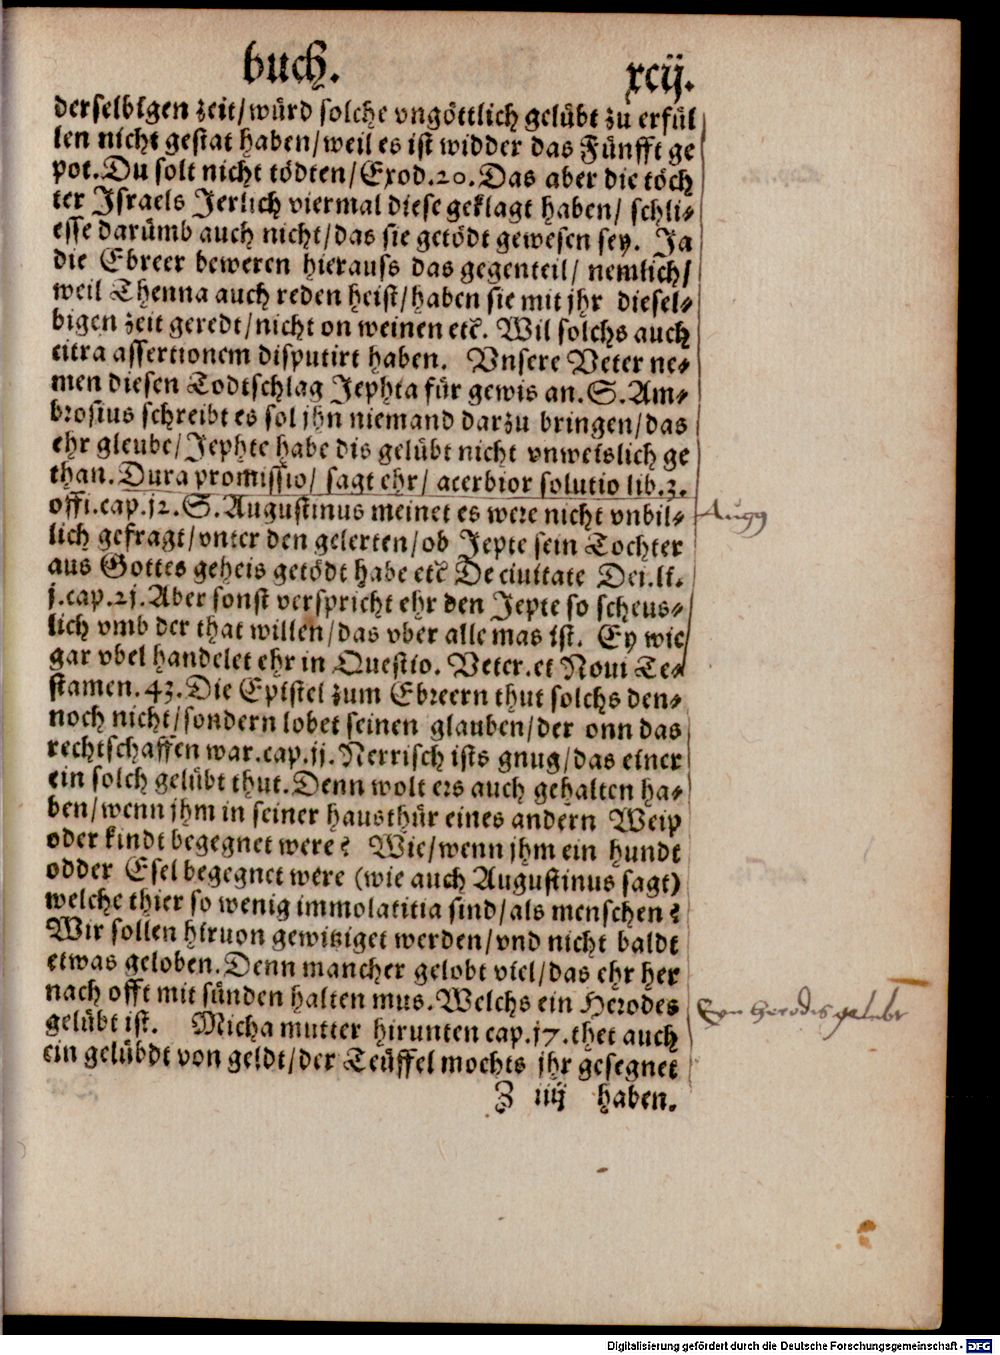 buch. xcij.
derselbigen zeit/würd solche vngöttlich gelübt zu erfül
len nicht gestat haben/weil es ist widder das Fünfft ge
pot. Du solt nicht tödten/Exod. 20. Das aber die töch
ter Israels Jerlich viermal diese geklagt haben/ schli⸗
esse darümb auch nicht/das sie getödt gewesen sey. Ja
die Ebreer beweren hierauss das gegenteil/ nemlich/
weil Thenna auch reden heist/haben sie mit jhr diesel⸗
bigen zeit geredt/nicht on weinen etc̈. Wil solchs auch
citra assertionem disputirt haben. Vnsere Veter ne⸗
men diesen Todtschlag Jephta für gewis an. S. Am⸗
brosius schreibt es sol jhn niemand darzu bringen/das
ehr gleube/Jephte habe dis gelübt nicht vnweislich ge
than. Dura promissio/ sagt ehr/ acerbior solutio lib. 3.
offi. cap. 12. S. Augustinus meinet es were nicht vnbil⸗
Augg
lich gefragt/vnter den gelerten/ob Jepte sein Tochter
aus Gottes geheis getödt habe etc̈ De ciuitate Dei. li.
j. cap. 21. Aber sonst verspricht ehr den Jepte so scheus⸗
lich vmb der that willen/das vber alle mas ist. Ey wie
gar vbel handelet ehr in Questio. Veter. et Noui Te⸗
stamen. 43. Die Epistel zum Ebreern thut solchs den⸗
noch nicht/sondern lobet seinen glauben/der onn das
rechtschaffen war. cap. 11. Nerrisch ists gnug/das einer
ein solch gelübt thut. Denn wolt ers auch gehalten ha⸗
ben/wenn jhm in seiner hausthür eines andern Weip
oder kindt begegnet were? Wie/wenn jhm ein hundt
odder Esel begegnet were (wie auch Augustinus sagt)
welche thier so wenig immolatitia sind/als menschen?
Wir sollen hiruon gewitziget werden/vnd nicht baldt
etwas geloben. Denn mancher gelobt viel/das ehr her
nach offt mit sünden halten mus. Welchs ein Herodes
Eyn Herodis gelubt
gelübt ist. Micha mutter hirunten cap. 17. thet auch
ein gelübdt von geldt/der Teüffel mochts jhr gesegnet
Z iiij haben.
Digitalisierung gefördert durch die Deutsche Forschungsgemeinschaft - DFG